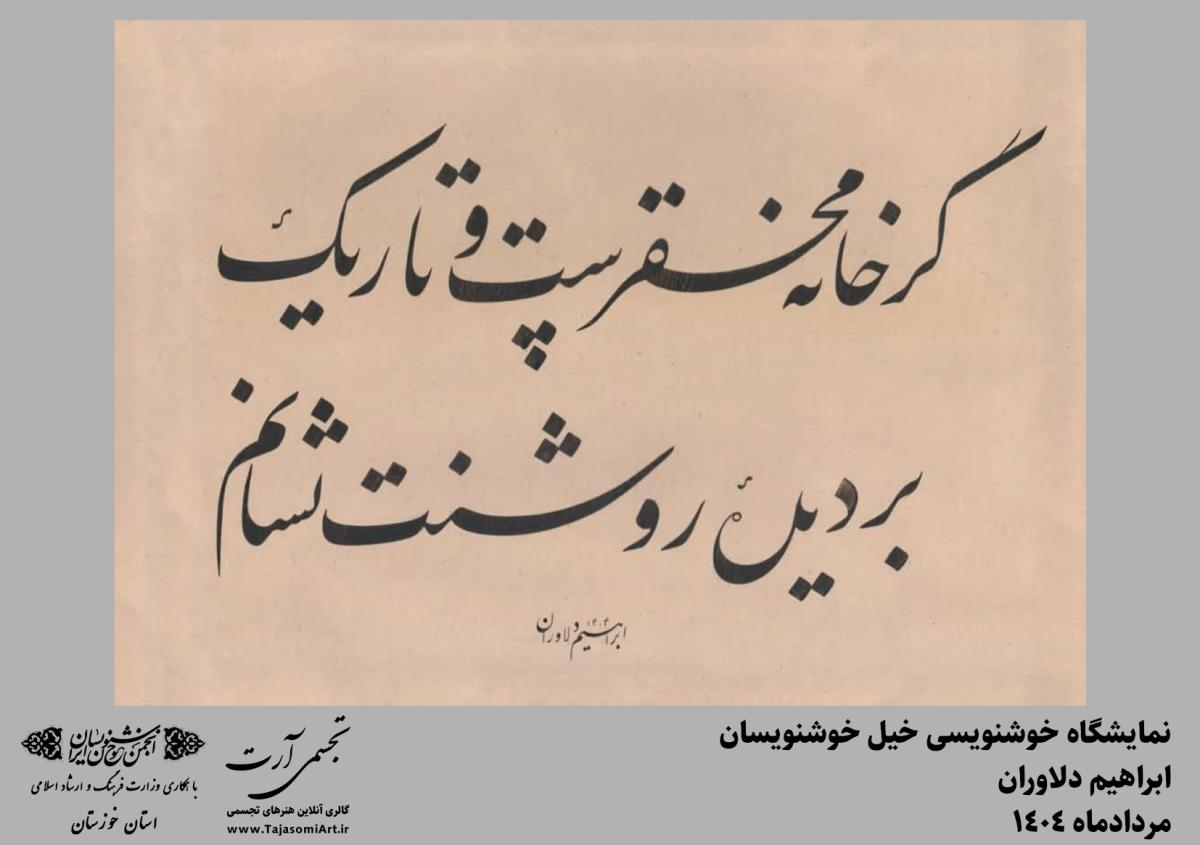 گر خانه محقرست و تاریک
بر دیدهٔ روشنت نشانم
ابراهیم دلاوران ۱۴۰۳
نمایشگاه خوشنویسی خیل خوشنویسان
ابراهیم دلاوران
مردادماه ۱۴۰۴
تجسمی آرت
گالری آنلاین هنرهای تجسمی
www.TajasomiArt.ir
انجمن خوشنویسان ایران
با همکاری وزارت فرهنگ و ارشاد اسلامی
استان خوزستان